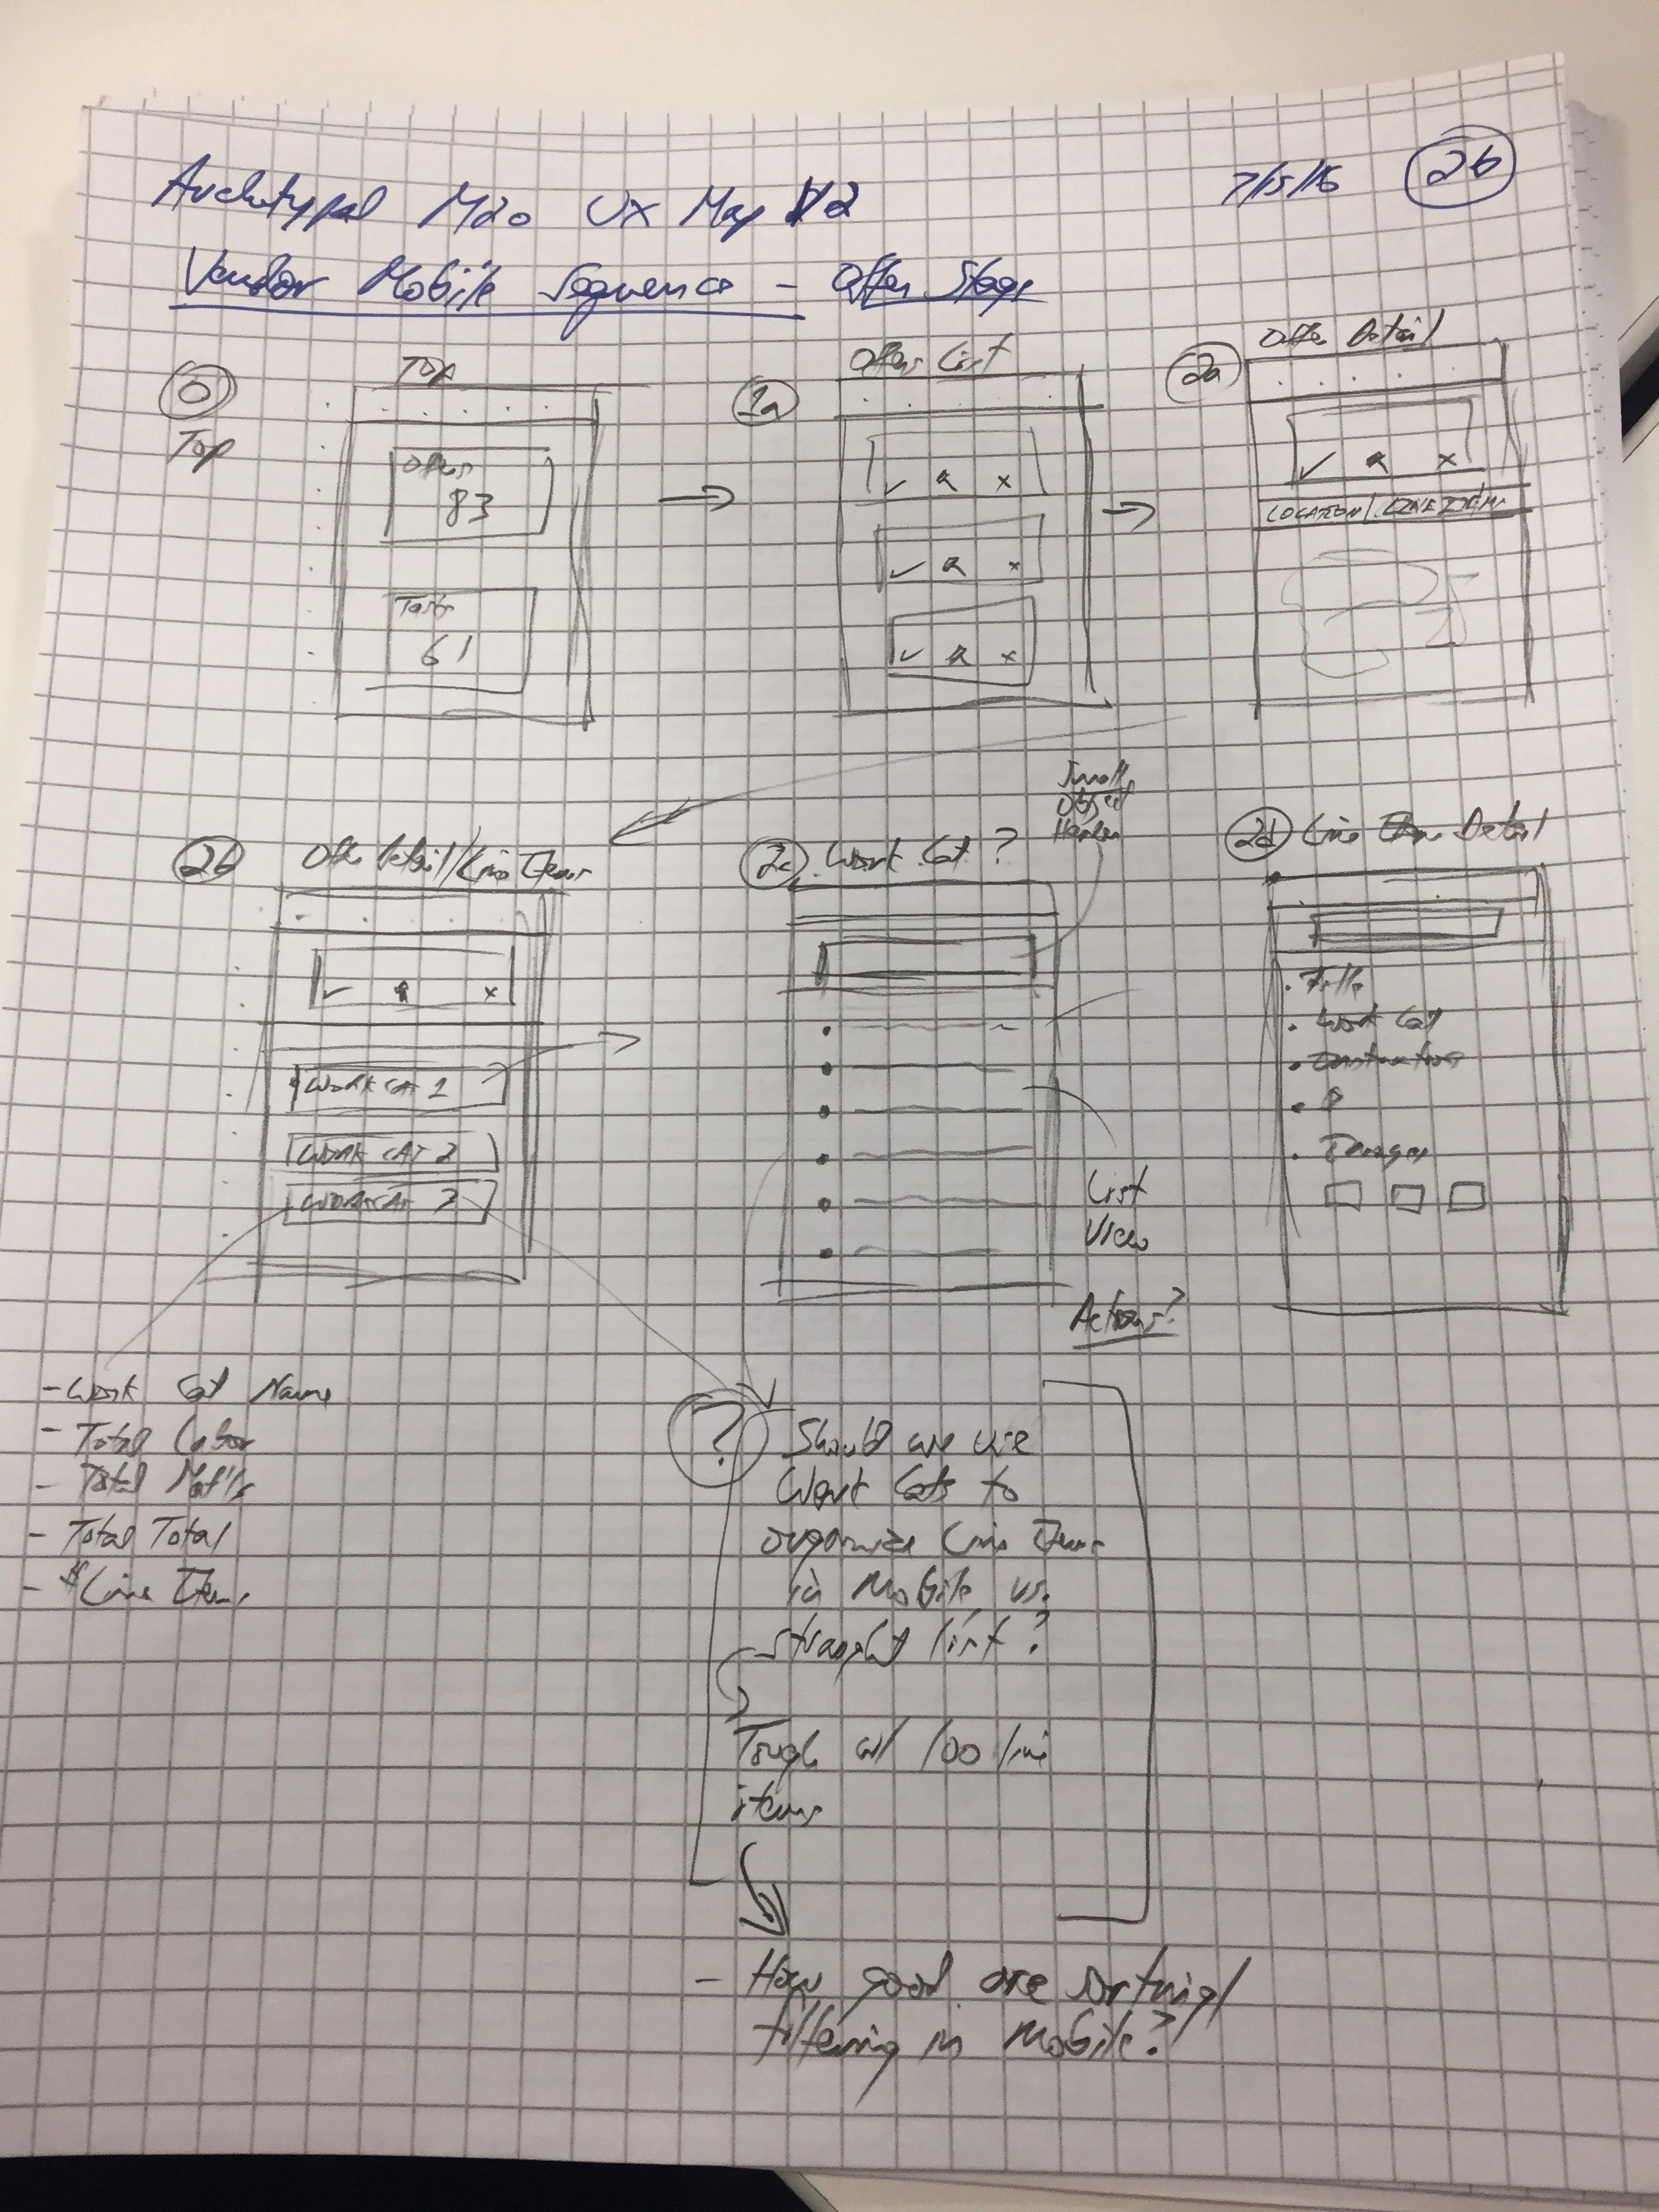 Archetypal M20 UX Map V2
7/15/16 2b
Vendor Mobile Sequence - Offer Stage
0
Top
Top
Offers
83
Tasks
61
1a
Offers List
✓ x
✓ x
✓ x
2a
Offer Detail
✓ x
LOCATION | LINE ITEMS
2b
Offer Detail/Line Items
✓ x
WORK CAT 1
WORK CAT 2
WORK CAT 3
2c Work Cat ?
Small
Object
Header
List
View
Actions?
2d Line Item Detail
Title
Work Cat
Images
- Work Cat Name
- Total Labor
- Total Mat'ls
- Total Total
- Line Items
?
Should we use
Work Cats to
organize Line Items
in Mobile vs.
straight list?
Tough w/ 100 line
items
- How good are sorting/
filtering in Mobile?